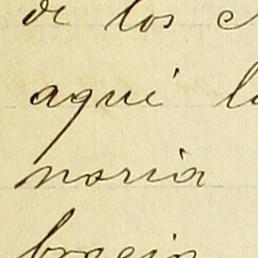 de los
aqui l
noria